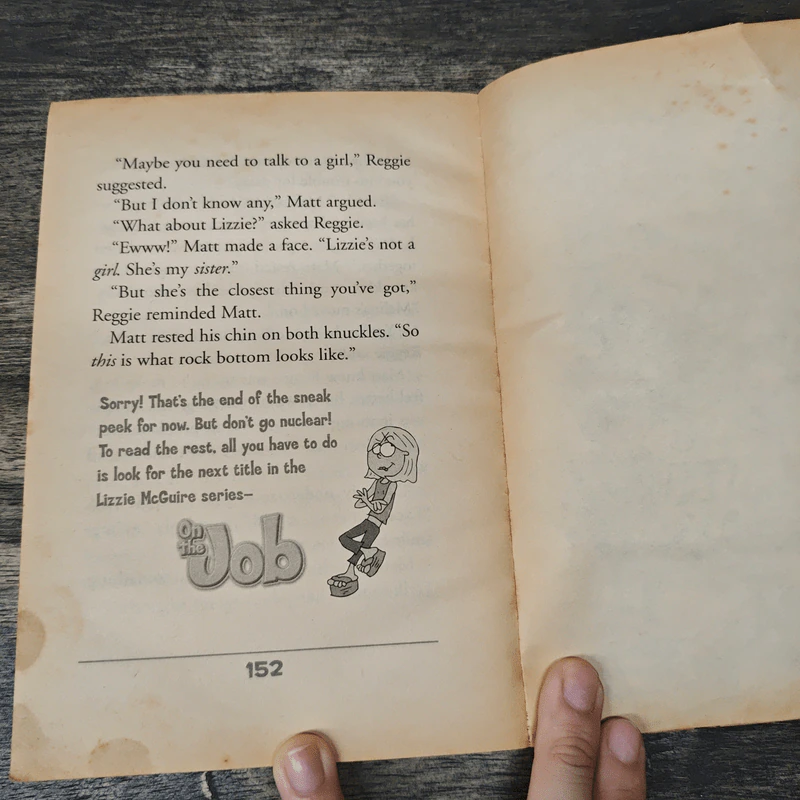 “Maybe you need to talk to a girl,” Reggie
suggested.
“But I don’t know any,” Matt argued.
“What about Lizzie?” asked Reggie.
“Ewww!” Matt made a face. “Lizzie’s not a
girl. She’s my sister.”
“But she’s the closest thing you’ve got,”
Reggie reminded Matt.
Matt rested his chin on both knuckles. “So
this is what rock bottom looks like.”
Sorry! That’s the end of the sneak
peek for now. But don’t go nuclear!
To read the rest, all you have to do
is look for the next title in the
Lizzie McGuire series—
On
The
Job
152